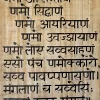 णमो सिद्धाणं
णमो आयरियाणं
णमो उवज्झायाणं
णमो लोए सव्वसाहूणं
एसो पंच णमोक्कारो
सव्व पावप्पणासणो
मंगलाणं च सव्वेसिं